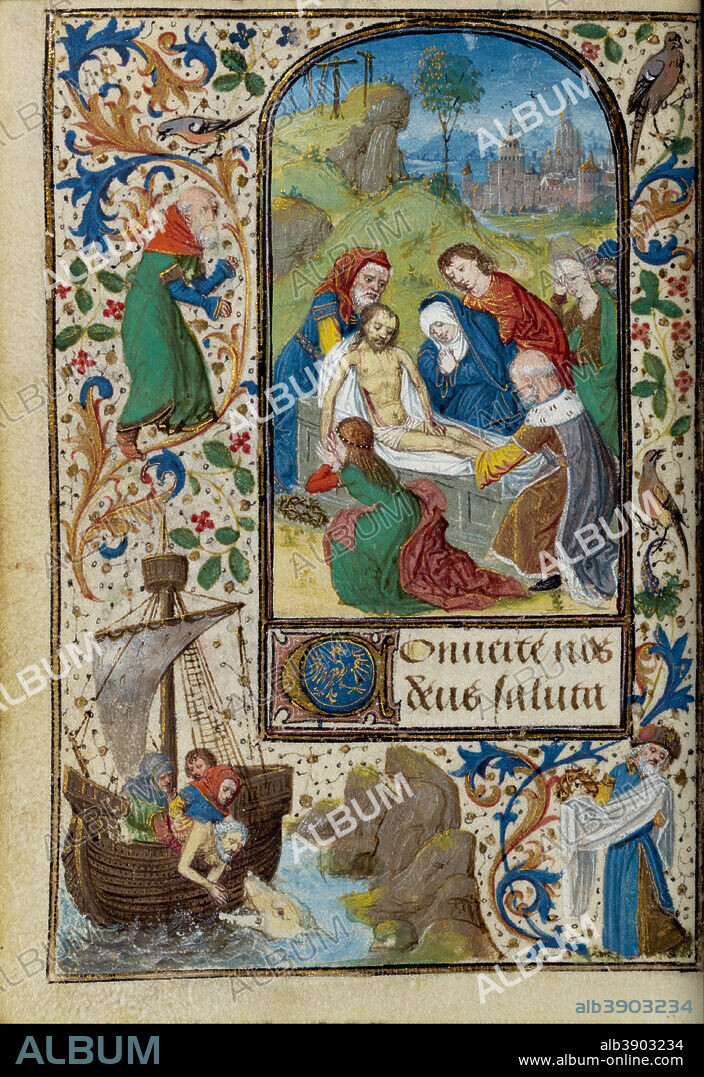 Conuerte nos
deus saluta
alb3903234
ALBUM
alb3903234
www.album-online.com